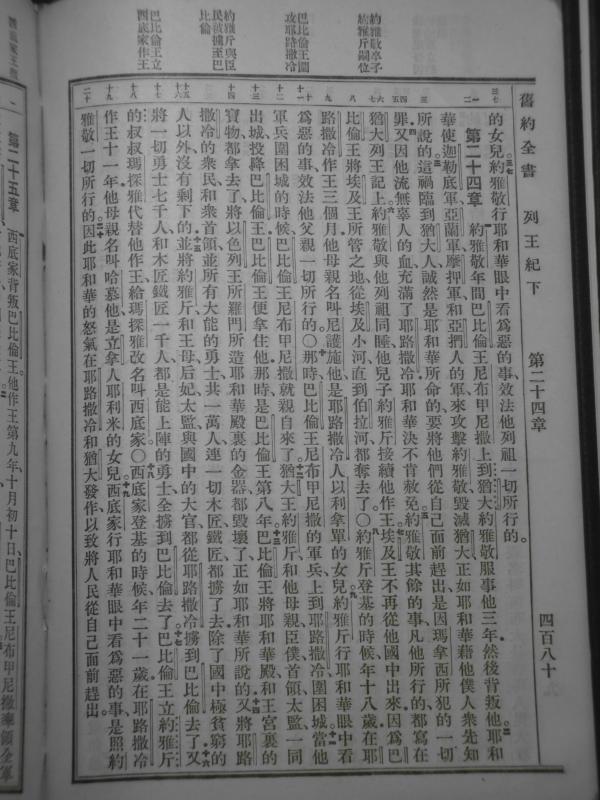 舊約全書 列王紀下 第二十四章 四百八十
約雅敬卒子
約雅斤嗣位
巴比倫王圍
攻耶路撒冷
約雅斤與臣
民被擄至巴
比倫
巴比倫王立
西底家作王
的女兒約雅敬行耶和華眼中看爲惡的事效法他列祖一切所行的。
第二十四章 約雅敬年間巴比倫王尼布甲尼撒上到猶大約雅敬服事他三年然後背叛他耶和
華使迦勒底軍亞蘭軍摩押軍和亞捫人的軍來攻擊約雅敬毀滅猶大正如耶和華藉他僕人衆先知
所說的這禍臨到猶大人誠然是耶和華所命的要將他們從自己面前趕出是因瑪拿西所犯的一切
罪又因他流無辜人的血充滿了耶路撒冷耶和華決不肯赦免約雅敬其餘的事凡他所行的都寫在
猶大列王記上約雅敬與他列祖同睡他兒子約雅斤接續他作王埃及王不再從他國中出來因爲巴
比倫王將埃及王所管之地從埃及小河直到伯拉河都奪去了〇約雅斤登基的時候年十八歲在耶
路撒冷作王三個月他母親名叫尼護施他是耶路撒冷人以利拿單的女兒約雅斤行耶和華眼中看
爲惡的事效法他父親一切所行的〇那時巴比倫王尼布甲尼撒的軍兵上到耶路撒冷圍困城當他
軍兵圍困城的時候巴比倫王尼布甲尼撒就親自來了猶大王約雅斤和他母親臣僕首領太監一同
出城投降巴比倫王巴比倫王便拿住他那時是巴比倫王第八年巴比倫王將耶和華殿和王宮裏的
寶物都拿去了將以色列王所羅門所造耶和華殿裏的金器都毀壞了正如耶和華所說的又將耶路
撒冷的衆民和衆首領並所有大能的勇士共一萬人連一切木匠鐵匠都擄了去除了國中極貧窮的
人以外沒有剩下的並將約雅斤和王母后妃太監與國中的大官都從耶路撒冷擄到巴比倫去了又
將一切勇士七千人和木匠鐵匠一千人都是能上陣的勇士全擄到巴比倫去了巴比倫王立約雅斤
的叔叔瑪探雅代替他作王給瑪探雅改名叫西底家〇西底家登基的時候年二十一歲在耶路撒冷
作王十一年他母親名叫哈慕他是立拿人耶利米的女兒西底家行耶和華眼中看爲惡的事是照約
雅敬一切所行的因此耶和華的怒氣在耶路撒冷和猶大發作以致將人民從自己面前趕出。
第二十五章 西底家背叛巴比倫王他作王第九年十月初十日巴比倫王尼布甲尼撒率領全軍